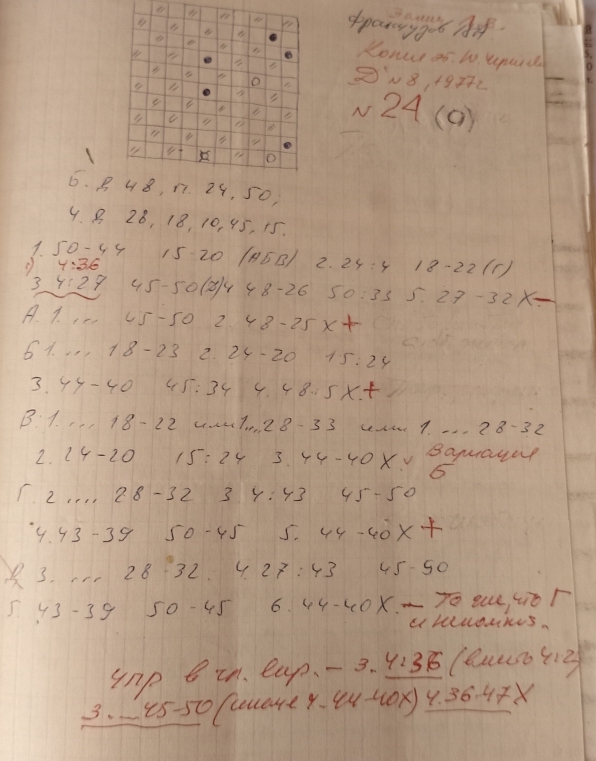 Л.В.
Копия
Д №8, 1977г.
№ 24 (а)
Б. Д 48, п. 24, 50;
Ч. Д 28, 18, 10, 45, 15.
1. 50-44 15-20 (АБВ) 2. 24:4 18-22 (Г)
4:36
3. 4:27 45-50 (Д) 4 48-26 50:33 5. 27-32X-
А. 1. ... 45-50 2. 48-25X+
Б 1. ... 18-23 2. 24-20 15:24
3. 44-40 45:34 4. 48:5X+
В. 1. ... 18-22 или 1... 28-33 или 1. ... 28-32
2. 24-20 15:24 3. 44-40X Вариация
Б
Г. 2 .... 28-32 3. 4:43 45-50
4. 43-39 50-45 5. 44-40X+
Д 3. ... 28-32. 4. 27:43 45-50
5. 43-39 50-45 6. 44-40X.- То же, что Г
упр в гл. вар. - 3. 4:36 (вместо 4:2
3. ... 45-50 (иначе 4. 44-40X) 4. 36-47X